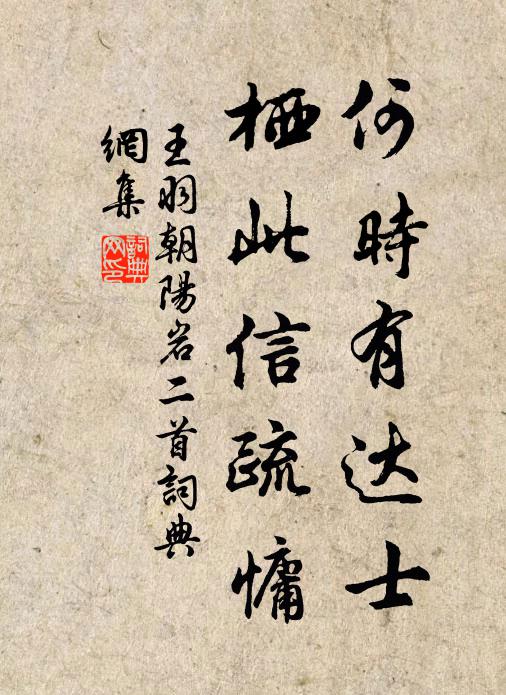 何時有达士
栖此信疏慵
王羽朝陽岩二首詞典
網集
詞典
网印